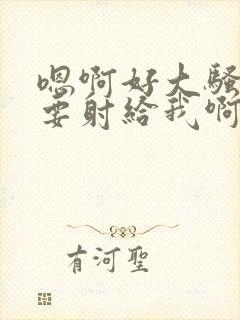 嗯啊好大騷
要射給我啊
有河聖